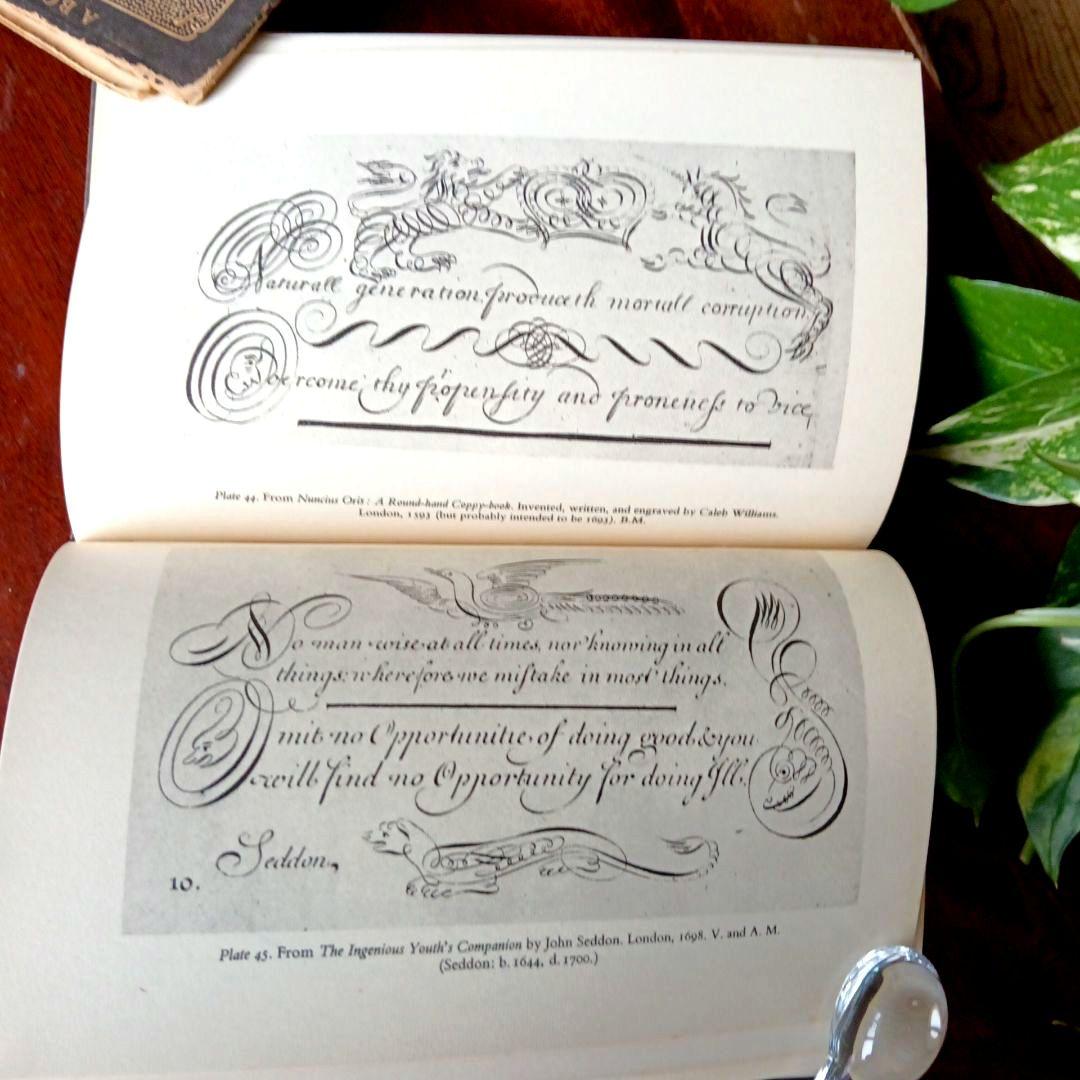 A BO
Naturall generation, produceth mortall corruption.
Overcome, thy propensity and proneness to vice,
Plate 44. From Nuncius Oris: A Round-hand Coppy-book. Invented, written, and engraved by Caleb Williams.
London, 1593 (but probably intended to be 1693). B.M.
No man wise at all times, nor knowing in all
things: wherefore we mistake in most things.
Omit no Opportunitie of doing good, & you
will find no Opportunity for doing Ill.
Seddon,
10.
Plate 45. From The Ingenious Youth's Companion by John Seddon. London, 1698. V. and A. M.
(Seddon: b. 1644, d. 1700.)